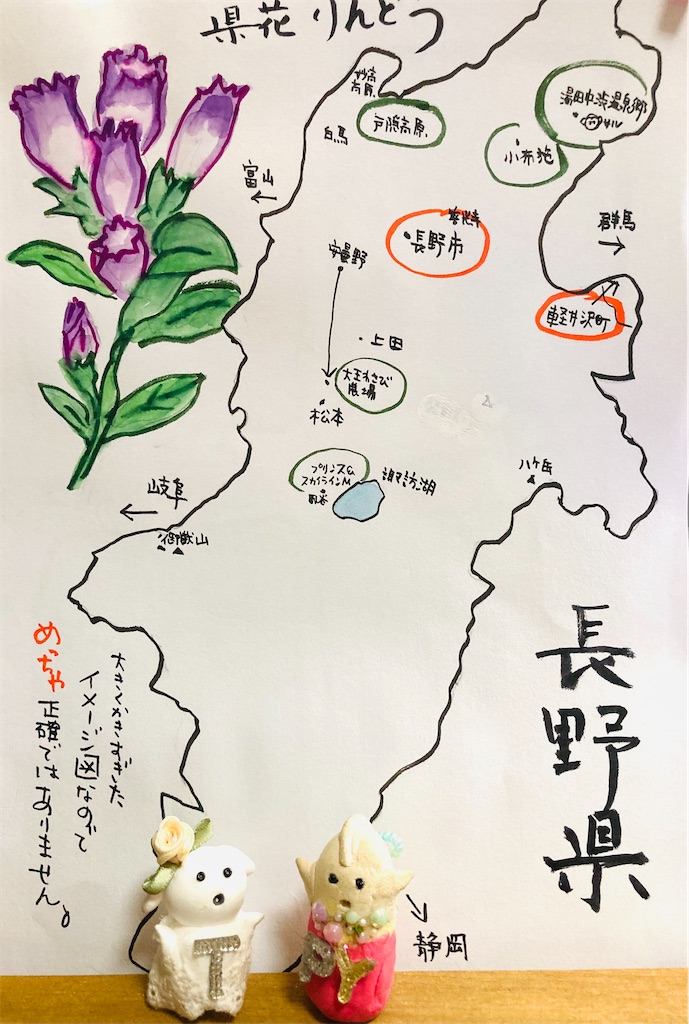 県花りんどう
妙高
高原
白馬
戸隠高原
湯田中渋温泉郷
サル
小布施
富山
←
善光寺
長野市
群馬
→
安曇野
軽井沢町
上田
大王わさび
農場
松本
プリンス&
スカイラインM
岡谷
諏訪湖
八ヶ岳
岐阜
←
御嶽山
長野県
大きくかきすぎた
イメージ図なので
めっちゃ正確ではありません。
静岡
T
PY